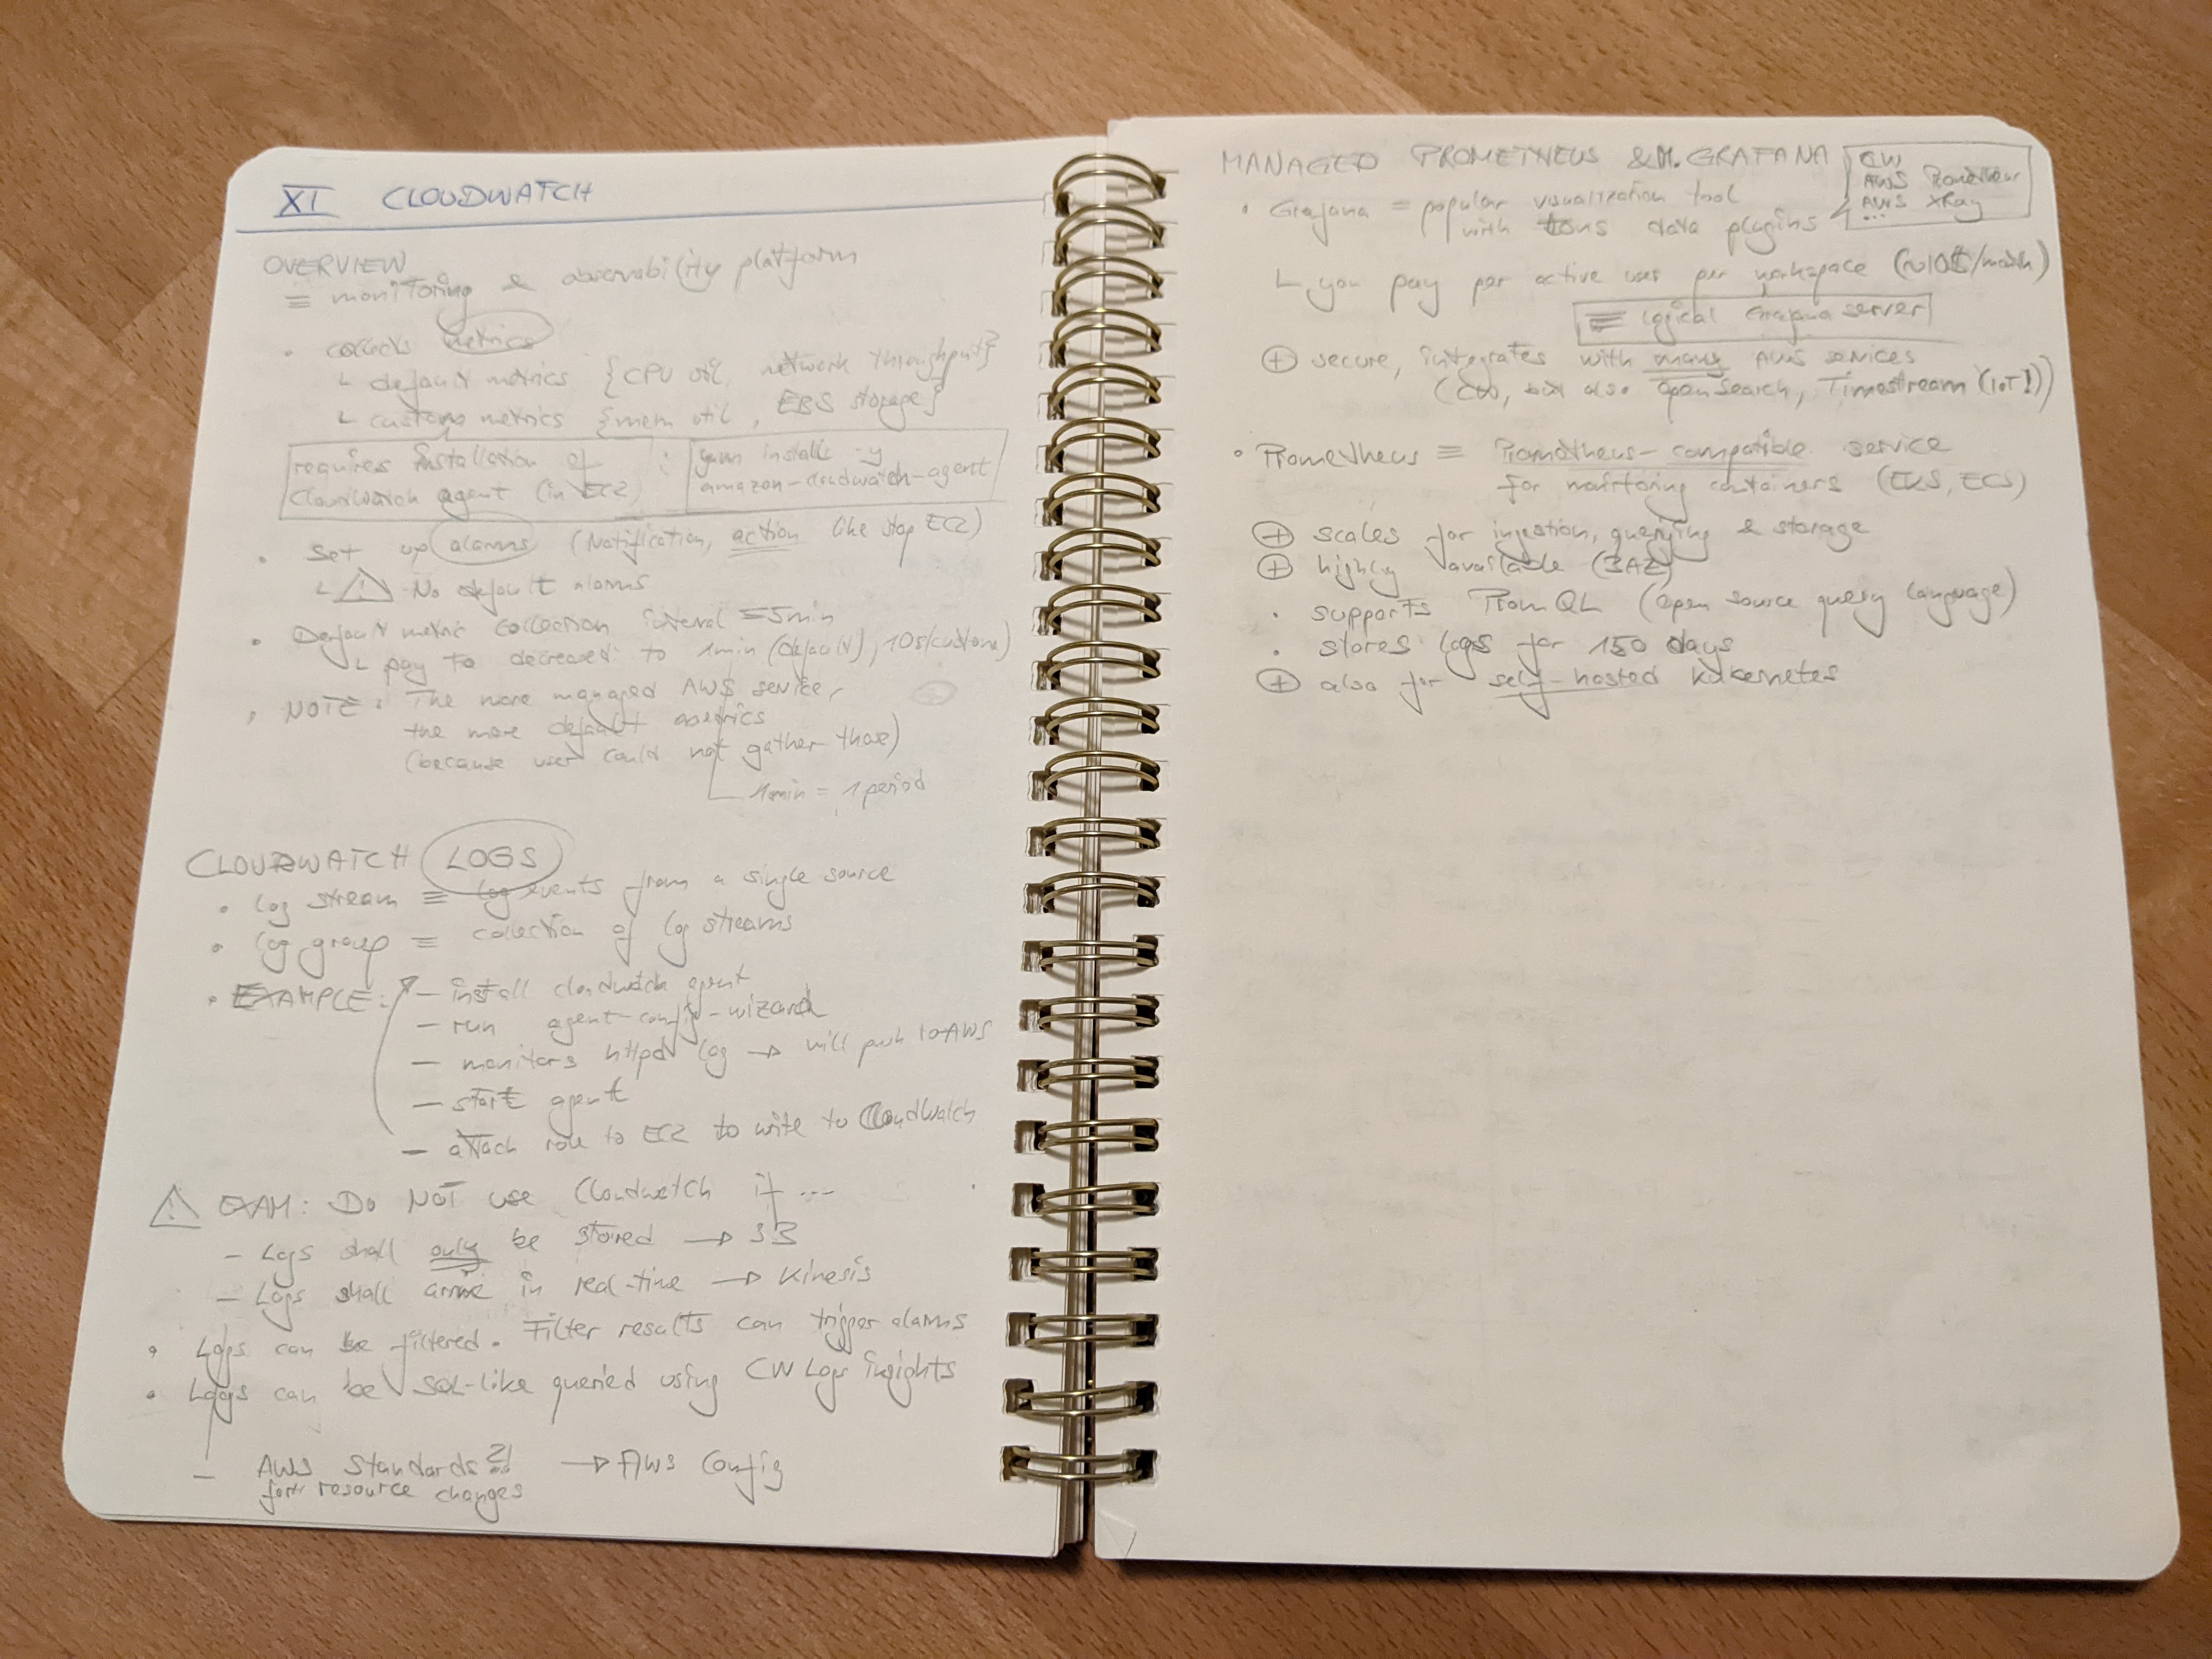 XI CLOUDWATCH
OVERVIEW
≡ monitoring & observability platform
• collects metrics
↳ default metrics {CPU util, network throughput}
↳ custom metrics {mem util, EBS storage}
requires installation of : yum install -y
CloudWatch agent (in EC2) amazon-cloudwatch-agent
• Set up alarms (Notification, action like stop EC2)
↳ ⚠ No default alarms
• Default metric collection interval = 5min
↳ pay to decrease: to 1min (default), 10s (custom)
• NOTE: The more managed AWS service,
the more default metrics
(because user could not gather those)
1min = 1 period
CLOUDWATCH LOGS
• log stream ≡ log events from a single source
• log group ≡ collection of log streams
• EXAMPLE: – install cloudwatch agent
– run agent-config-wizard
– monitors httpd log → will push to AWS
– start agent
– attach role to EC2 to write to CloudWatch
⚠ EXAM: DO NOT use Cloudwatch if ...
– Logs shall only be stored → S3
– Logs shall arrive in real-time → Kinesis
• Logs can be filtered. Filter results can trigger alarms
• Logs can be SQL-like queried using CW Logs insights
– AWS Standards → AWS Config
for resource changes
MANAGED PROMETHEUS & M. GRAFANA
CW
AWS Prometheus
AWS XRay
...
• Grafana = popular visualization tool
with tons data plugins
↳ you pay per active user per workspace (~10$/month)
≡ logical Grafana server
⊕ secure, integrates with many AWS services
(CW, but also OpenSearch, Timestream (IoT!))
• Prometheus ≡ Prometheus-compatible service
for monitoring containers (EKS, ECS)
⊕ scales for ingestion, querying & storage
⊕ highly available (3AZ)
• supports PromQL (open source query language)
• stores logs for 150 days
⊕ also for self-hosted Kubernetes